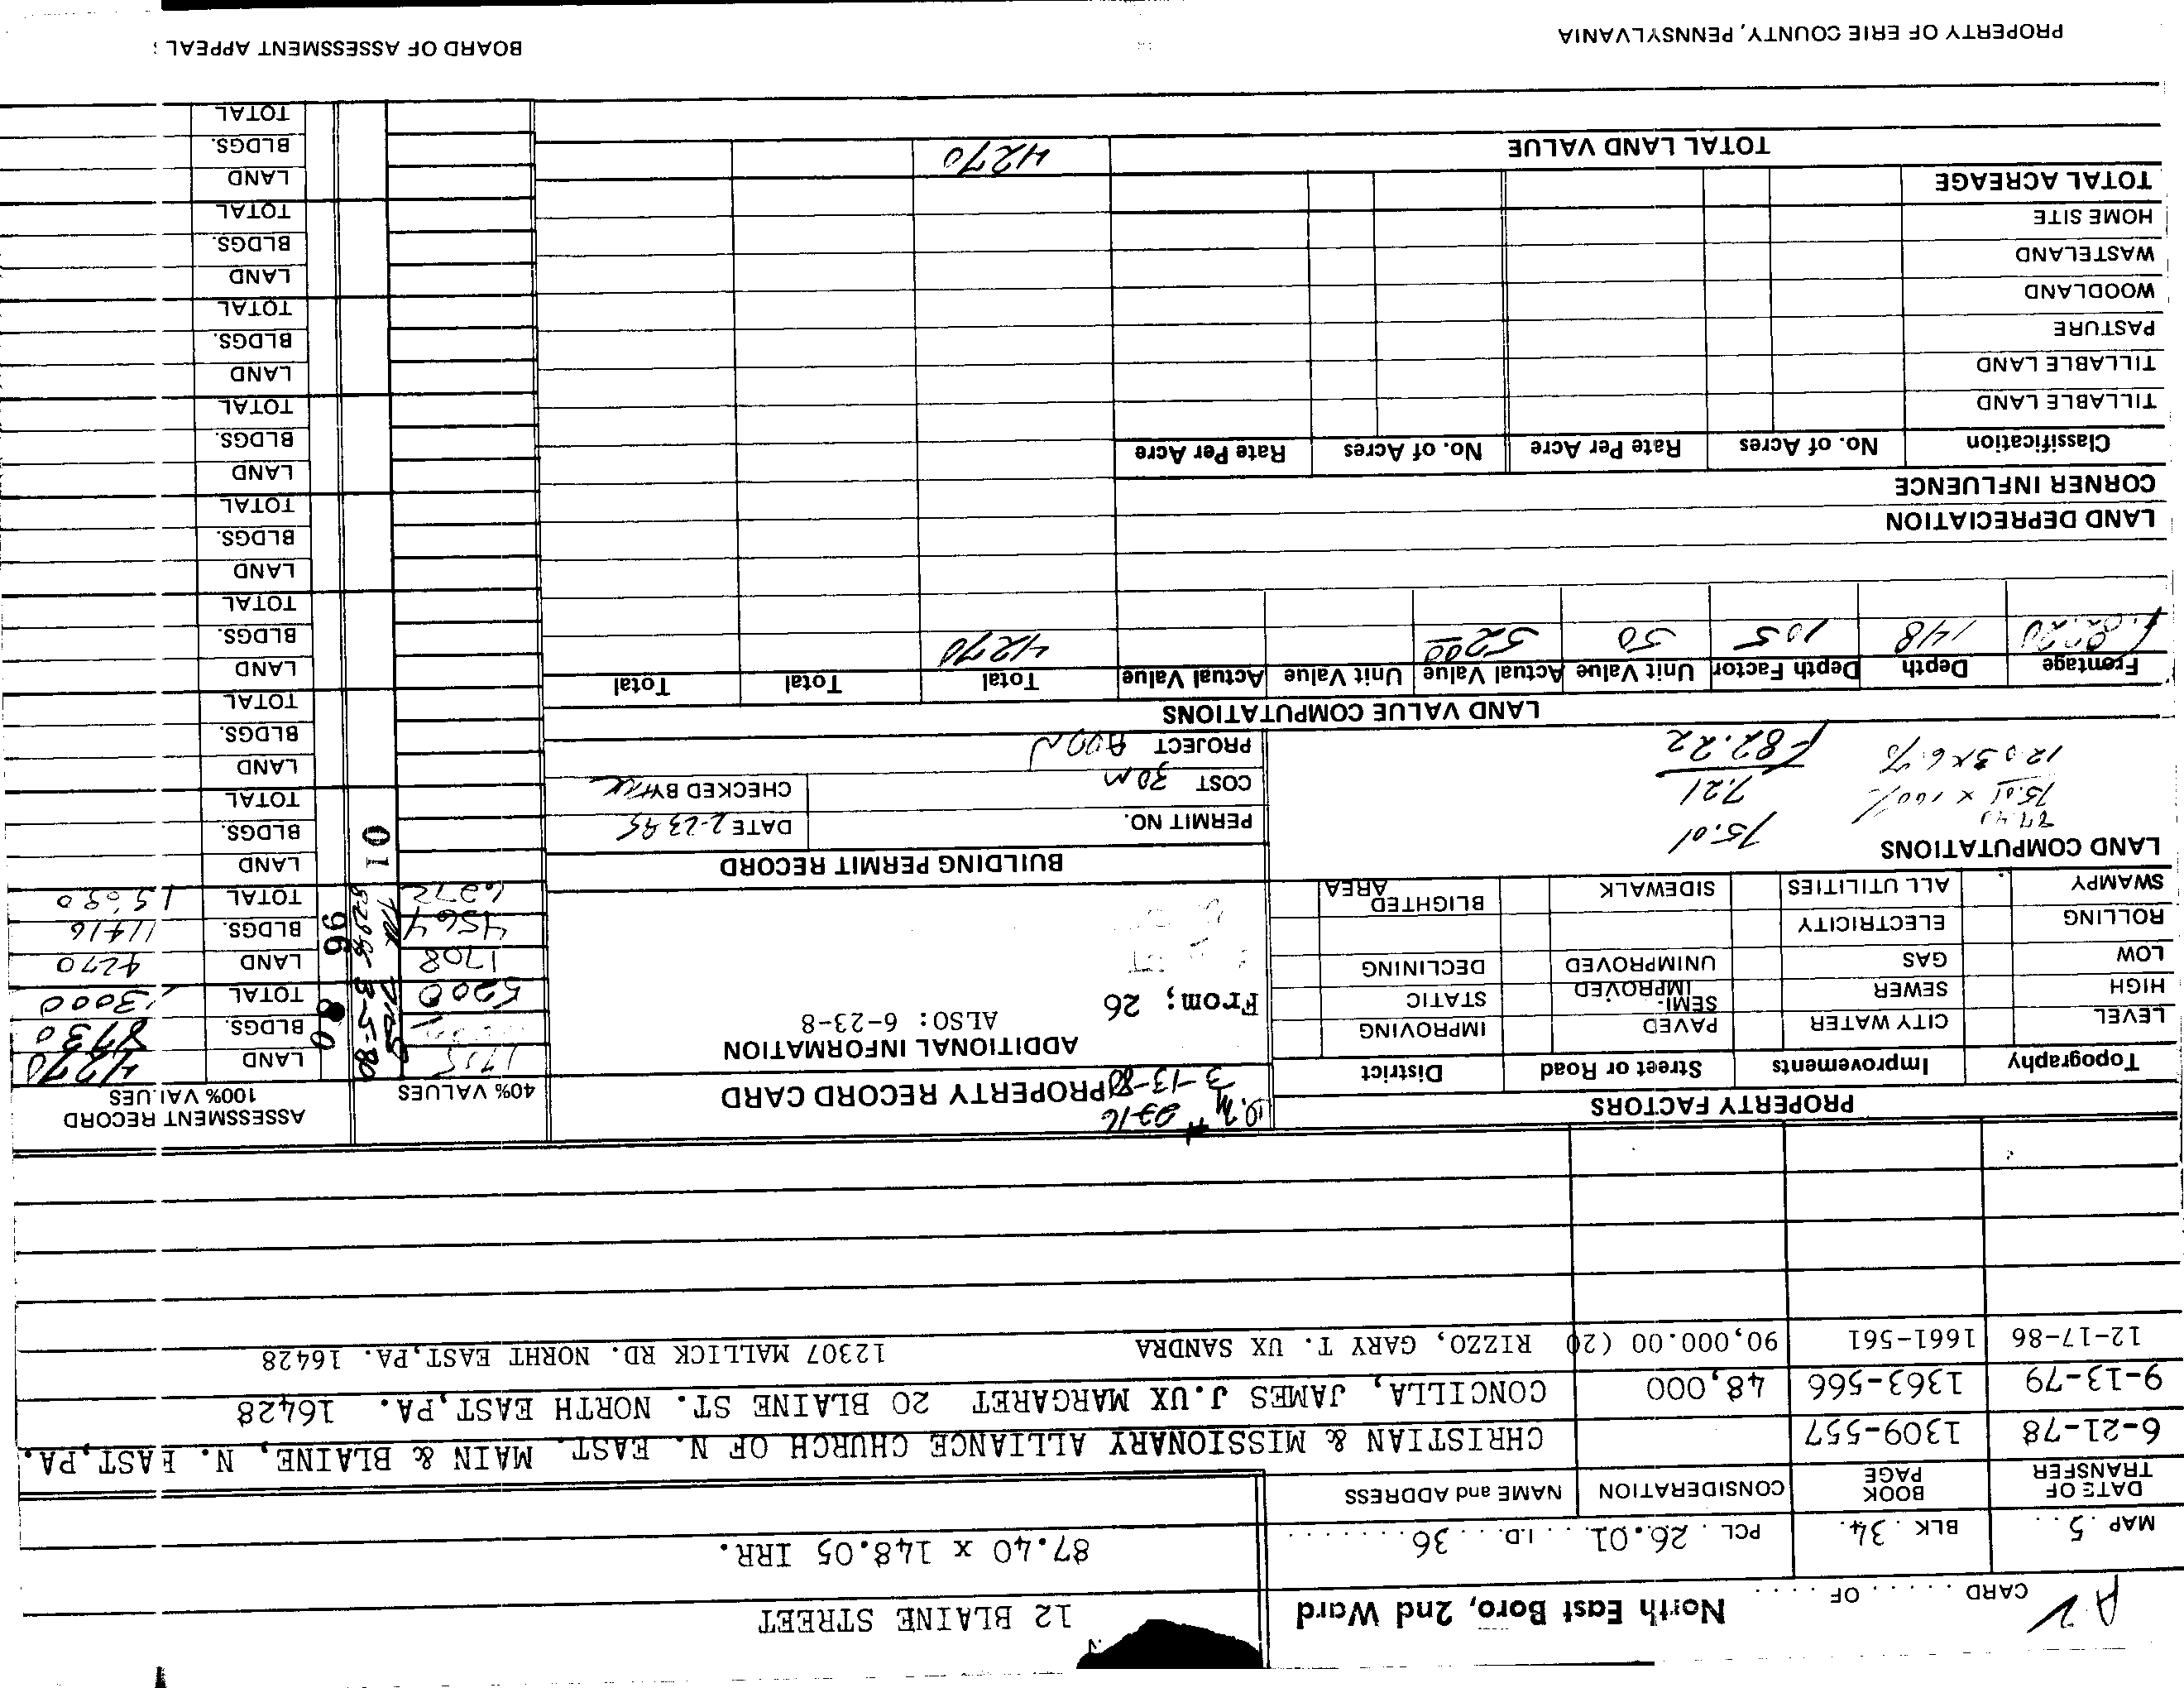 A 2 CARD ..... OF .... North East Boro, 2nd Ward 12 BLAINE STREET
MAP . 5 . . BLK . 34. PCL . 26.01. . . I.D. . . 36 . . . . . . . 87.40 x 148.05 IRR.
DATE OF TRANSFER BOOK PAGE CONSIDERATION NAME and ADDRESS
6-21-78 1309-557 CHRISTIAN & MISSIONARY ALLIANCE CHURCH OF N. EAST. MAIN & BLAINE, N. EAST,PA.
9-13-79 1363-566 48,000 CONCILLA, JAMES J.UX MARGARET 20 BLAINE ST. NORTH EAST,PA. 16428
12-17-86 1661-561 90,000.00 (20 RIZZO, GARY T. UX SANDRA 12307 MALLICK RD. NORHT EAST,PA. 16428
PROPERTY FACTORS
Topography Improvements Street or Road District
LEVEL CITY WATER PAVED IMPROVING
HIGH SEWER SEMI-IMPROVED STATIC
LOW GAS UNIMPROVED DECLINING
ROLLING ELECTRICITY
SWAMPY ALL UTILITIES SIDEWALK BLIGHTED AREA
LAND COMPUTATIONS
75.01 x 100%
75.01
7.21
82.22
3-13-80
PROPERTY RECORD CARD
ADDITIONAL INFORMATION
ALSO: 6-23-8
From; 26
BUILDING PERMIT RECORD
PERMIT NO. DATE 2-23-95
COST 30M CHECKED BY
PROJECT ADDN
ASSESSMENT RECORD
40% VALUES 100% VALUES
1715 80 LAND 4270
BLDGS. 8730
5200 TOTAL 13000
1708 96 LAND 4270
4564 BLDGS. 11416
6272 TOTAL 15680
01 LAND
BLDGS.
TOTAL
LAND
BLDGS.
TOTAL
LAND
BLDGS.
TOTAL
LAND
BLDGS.
TOTAL
LAND
BLDGS.
TOTAL
LAND
BLDGS.
TOTAL
LAND
BLDGS.
TOTAL
LAND
BLDGS.
TOTAL
LAND VALUE COMPUTATIONS
Frontage Depth Depth Factor Unit Value Actual Value Unit Value Actual Value Total Total Total
82.20 148 105 50 5200 4270
LAND DEPRECIATION
CORNER INFLUENCE
Classification No. of Acres Rate Per Acre No. of Acres Rate Per Acre
TILLABLE LAND
TILLABLE LAND
PASTURE
WOODLAND
WASTELAND
HOME SITE
TOTAL ACREAGE
TOTAL LAND VALUE 4270
PROPERTY OF ERIE COUNTY, PENNSYLVANIA BOARD OF ASSESSMENT APPEAL